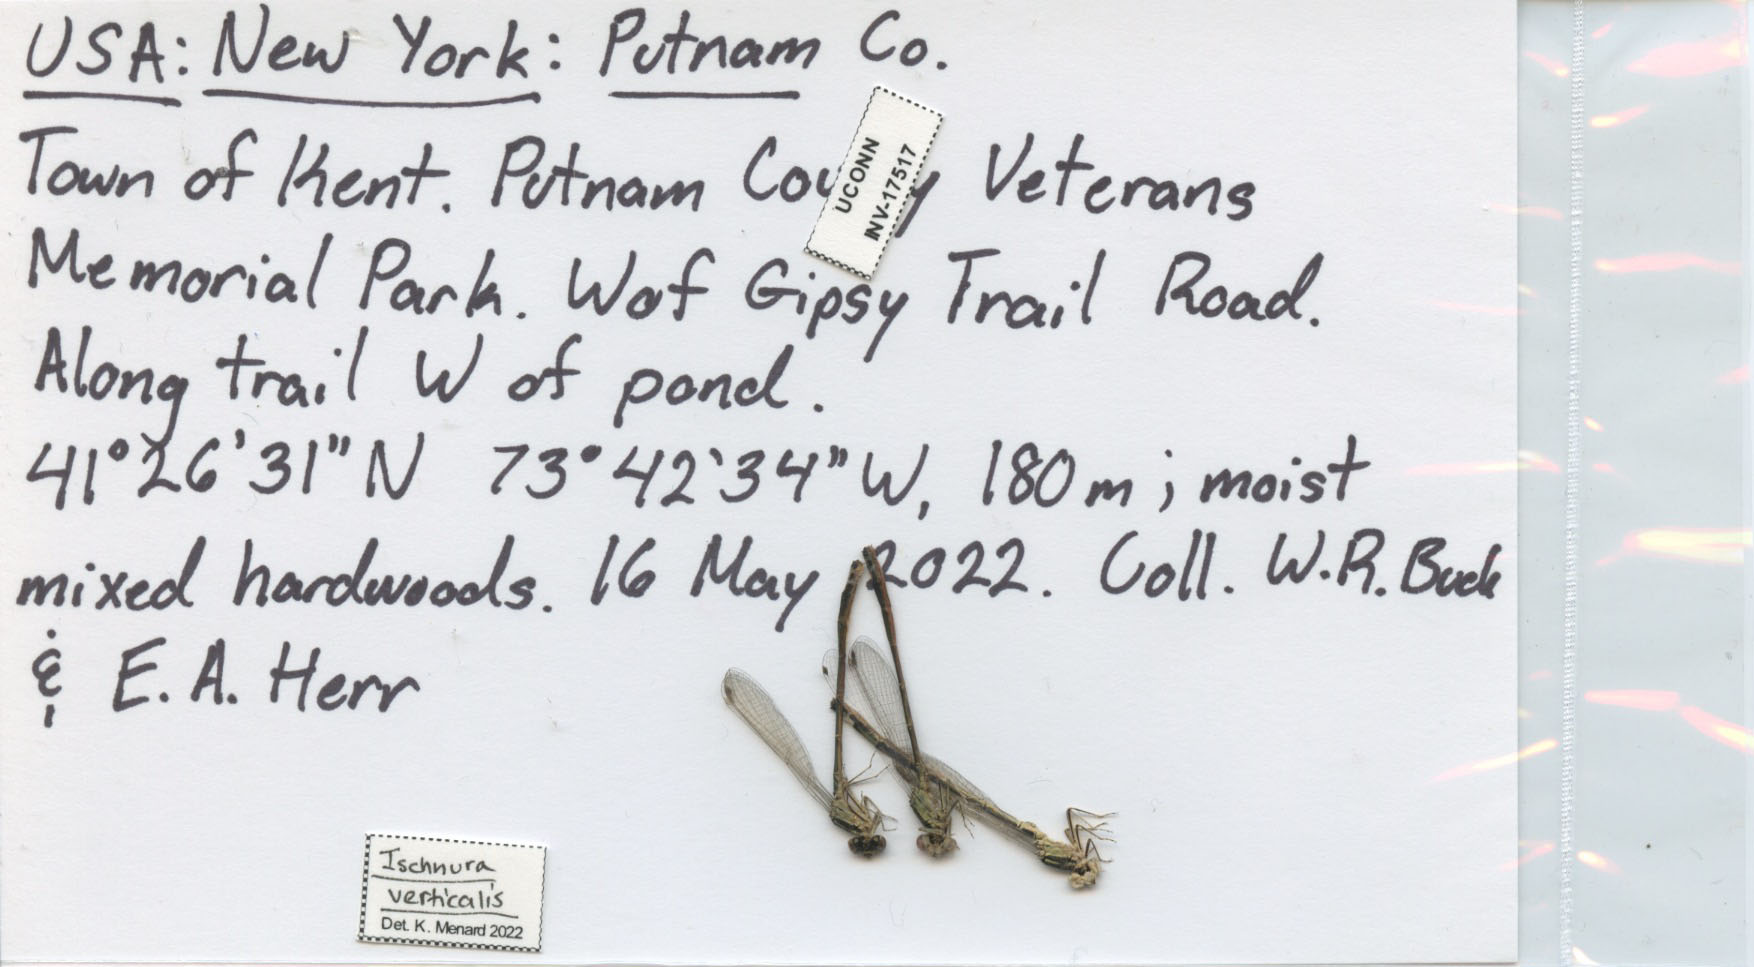 USA: New York: Putnam Co.
Town of Kent. Putnam Cou y Veterans
UCONN
INV-17517
Memorial Park. W of Gipsy Trail Road.
Along trail W of pond.
41°26'31"N 73°42'34"W, 180m; moist
mixed hardwoods. 16 May 2022. Coll. W.R. Buck
& E. A. Herr
Ischnura
verticalis
Det. K. Menard 2022